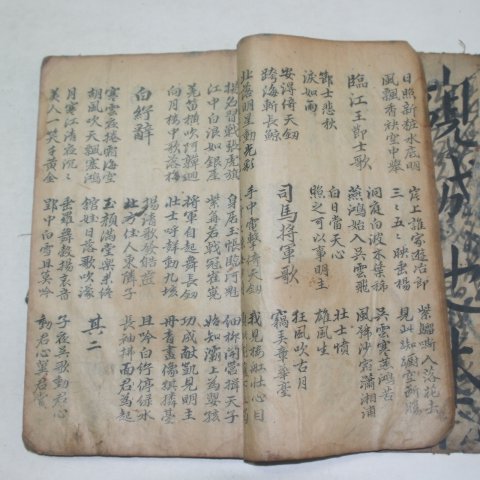 日照新粧水底明
風飄香袂空中擧
岸上誰家遊冶郎
三三五五映垂楊
紫騮嘶入落花去
見此踟躕空斷腸
臨江王節士歌
洞庭白波木葉稀
燕鴻始入吳雲飛
吳雲寒燕鴻苦
風號沙宿瀟湘浦
節士悲秋
淚如雨
白日當天心
照之可以事明主
壯士憤
雄風生
安得倚天劍
跨海斬長鯨
司馬將軍歌
狂風吹古月
竊弄章華臺
北落明星動光彩
手中電擊倚天劍
我見樓船壯心目
揚兵習戰張虎旗
江中白浪如銀屋
身居玉帳臨河魁
紫髯若戟冠崔嵬
細柳開營揖天子
始知灞上爲嬰孩
羌笛橫吹阿嚲廻
向月樓中吹落梅
將軍自起舞長劍
壯士呼聲動九垓
功成獻凱見明主
丹靑畫像猉獜臺
白紵辭
揚淸歌發皓齒
北方佳人東隣子
且吟白紵停綠水
長袖拂面爲君起
寒雲夜捲霜海空
胡風吹天飄塞鴻
玉顔滿堂樂未終
館娃日落歌吹濛
其二
月寒江淸夜沉沉
美人一笑千黃金
垂羅舞縠揚哀音
郢中白雪且莫吟
子夜吳歌動君心
動君心冀君賞